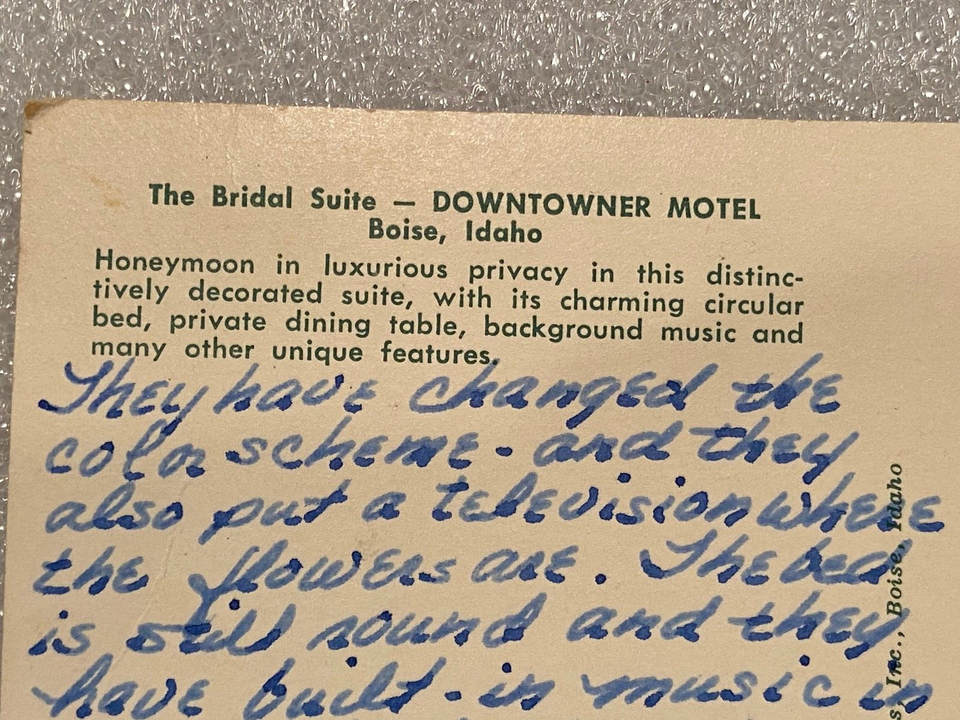 The Bridal Suite — DOWNTOWNER MOTEL
Boise, Idaho
Honeymoon in luxurious privacy in this distinc-
tively decorated suite, with its charming circular
bed, private dining table, background music and
many other unique features.
They have changed the
color scheme - and they
also put a television where
the flowers are. The bed
is still round and they
have built-in music in
s, Inc., Boise, Idaho